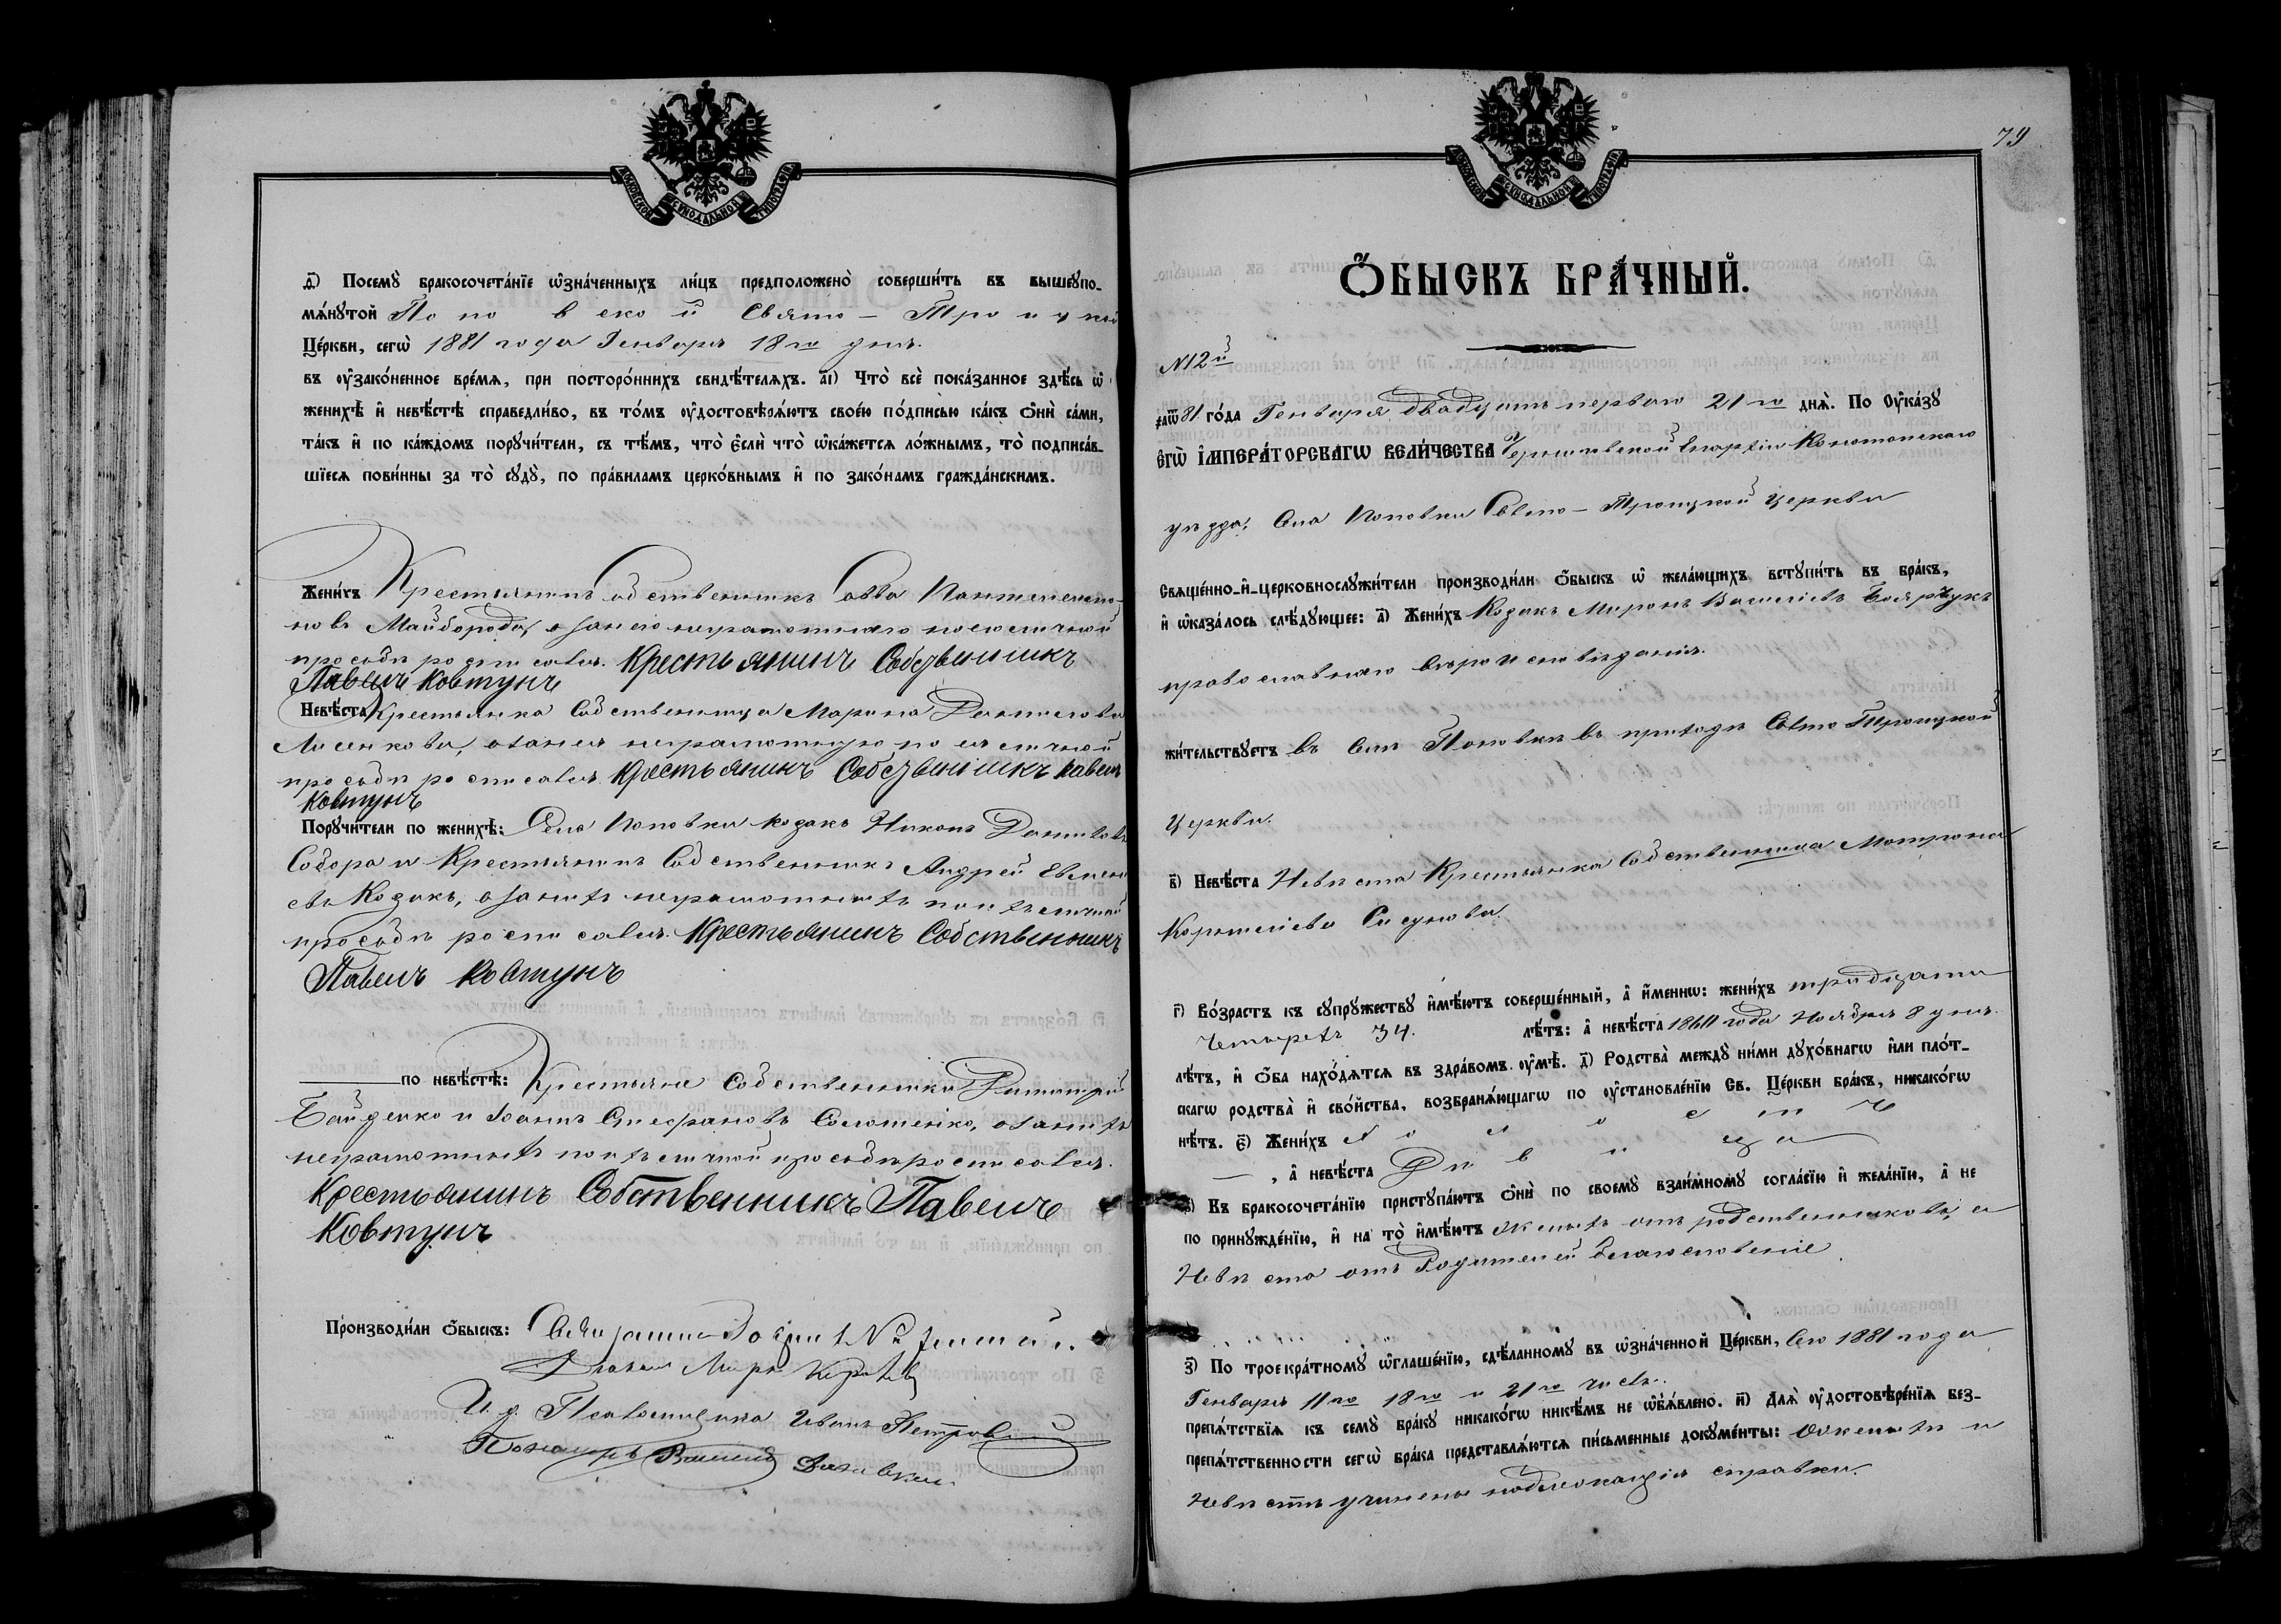 МОСКОВСКОЙ СѴНОДАЛЬНОЙ ТИПОГРАФІИ
Посемꙋ̀ бракосочета́нїе ѡ҆зна́ченныхъ ли́цъ предположено̀ соверши́ть въ вышеꙋпо-
мѧ́нꙋтой Поповской Свято-Троицкой
Це́ркви, сегѡ̀ 1881 года Генваря 18го дня.
въ ᲂу҆зако́ненное вре́мѧ, при посторо́ннихъ свидѣ́телѧхъ. а҃і) Что̀ всѐ пока́занное здѣ́сь ѡ҆
женихѣ̀ и҆ невѣ́стѣ справедли́во, въ то́мъ ᲂу҆достовѣрѧ́ютъ свое́ю по́дписью ка́къ ѻ҆нѝ са́ми,
та́къ и҆ по ка́ждомъ порꙋчи́тели, съ тѣ́мъ, что̀ є҆́сли что̀ ѡ҆ка́жетсѧ ло́жнымъ, то̀ подписа́в-
шїесѧ пови́нны за то̀ сꙋдꙋ̀, по пра́виламъ церко́внымъ и҆ по зако́намъ гражда́нскимъ.
Жени́хъ Крестьянинъ собственникъ Савва Пантелеимо-
новъ Майборода, а за него неграмотнаго по его личной
просьбѣ росписался. Крестьянинъ Собственникъ
Павелъ Ковтунъ
Невѣ́ста Крестьянка Собственница Марина Данилова
Лисенкова, а за нея неграмотную по ея личной
просьбѣ росписался Крестьянинъ Собственникъ Павелъ
Ковтунъ
Порꙋчи́тели по женихѣ̀: Села Поповки козакъ Никонъ Даниловъ
Собора и Крестьянинъ Собственникъ Андрей
Козакъ, а за нихъ неграмотныхъ по ихъ личной
просьбѣ росписался. Крестьянинъ Собственникъ
Павелъ Ковтунъ
по невѣ́стѣ: Крестьяне Собственники Димитрій
Байденко и Іоаннъ Стефановъ Соломенко, а за нихъ
неграмотныхъ по ихъ личной просьбѣ росписался.
Крестьянинъ Собственникъ Павелъ
Ковтунъ
Производи́ли ѻ҆́быскъ: Священникъ
Діаконъ
И. д. Псаломщика Иванъ Петровскій
Пономарь Василій
79
Ѻ҆́БЫСКЪ БРА́ЧНЫЙ.
N 12й
҂аѿ81 го́да Генваря двадцать перваго 21го днѧ̀. По Оу҆ка́зꙋ
є҆гѡ̀ і҆мпера́торскагѡ вели́чества Черниговской Епархіи Конотопскаго
уѣзда, Села Поповки Свято-Троицкой Церкви
Свѧще́нно-и҆-церковнослꙋжи́тели производи́ли ѻ҆́быскъ ѡ҆ жела́ющихъ встꙋпи́ть въ бра́къ,
и҆ ѡ҆каза́лось слѣ́дꙋющее: а҃) Жени́хъ Козакъ Миронъ Василіевъ Боярчукъ
православнаго вѣроисповѣданія.
жи́тельствꙋетъ въ Селѣ Поповкѣ въ приходѣ Свято Троицкой
Церкви.
в҃) Невѣ́ста Невѣста Крестьянка Собственница Матрона
Корнилієва Сисунова.
г҃) Во́зрастъ къ сꙋпрꙋ́жествꙋ и҆мѣ́ютъ соверше́нный, а҆ и҆́меннѡ: жени́хъ тридцати
четырехъ 34. лѣ́тъ: а҆ невѣ́ста 1860 года Ноября 8 дня.
лѣ́тъ, и҆ ѻ҆́ба нахо́дѧтсѧ въ здра́вомъ ᲂу҆мѣ̀. д҃) Родства̀ междꙋ̀ ни́ми дꙋхо́внагѡ и҆лѝ пло́т-
скагѡ родства̀ и҆ сво́йства, возбранѧ́ющагѡ по ᲂу҆становле́нїю Св. Це́ркви бра́къ, никако́гѡ
нѣ́тъ. є҃) Жени́хъ Холостъ
, а҆ невѣ́ста Дѣвица
Къ бракосочета́нїю пристꙋпа́ютъ ѻ҆нѝ по своемꙋ̀ взаи́мномꙋ согла́сїю и҆ жела́нїю, а҆ не
по принꙋжде́нїю, и҆ на то̀ и҆мѣ́ютъ женихъ отъ родственниковъ, а
Невѣста отъ Родителей благословеніе.
з҃) По троекра́тномꙋ ѡ҆глаше́нїю, сдѣ́ланномꙋ въ ѡ҆зна́ченной Це́ркви, Сего 1881 года
Генваря 11го 18го и 21го числъ.
препѧ́тствїѧ къ семꙋ̀ бра́кꙋ никако́гѡ никѣ́мъ не ѡ҆б̾ѧ́влено. и҃) Длѧ̀ ᲂу҆достовѣре́нїѧ без-
препѧ́тственности сегѡ̀ бра́ка представлѧ́ютсѧ пи́сьменные докꙋме́нты: О женихѣ и
невѣстѣ учинены надлежащія справки.